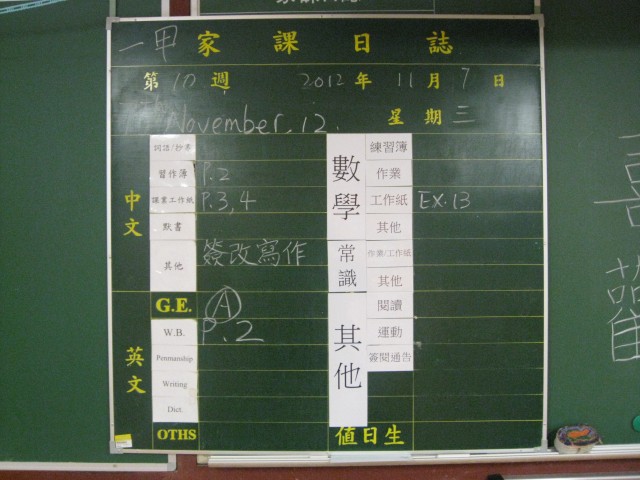 一甲 家課日誌
第 10 週 2012 年 11 月 7 日
November, 12. 星期 三
中文
詞語/抄書
習作簿 P.2
課業工作紙 P.3,4
默書
其他 簽改寫作
英文
G.E. Ⓐ
W.B. P.2
Penmanship
Writing
Dict.
OTHS
數學
練習簿
作業
工作紙 EX.13
其他
常識
作業/工作紙
其他
其他
閱讀
運動
簽閱通告
值日生